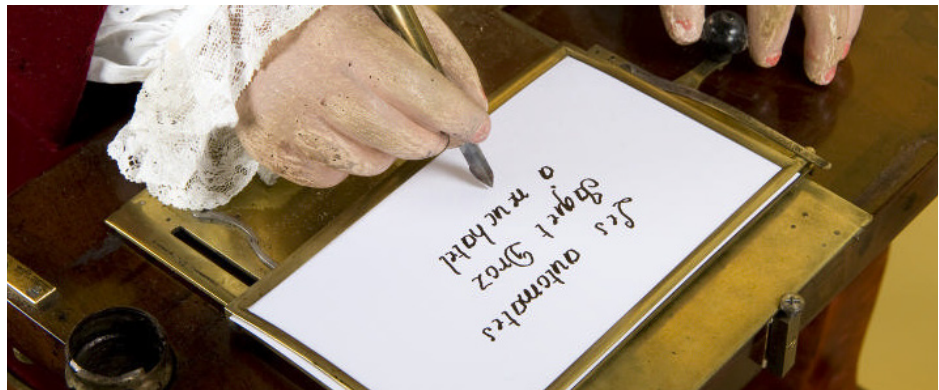 Les automates
Jaquet Droz
a neuchatel